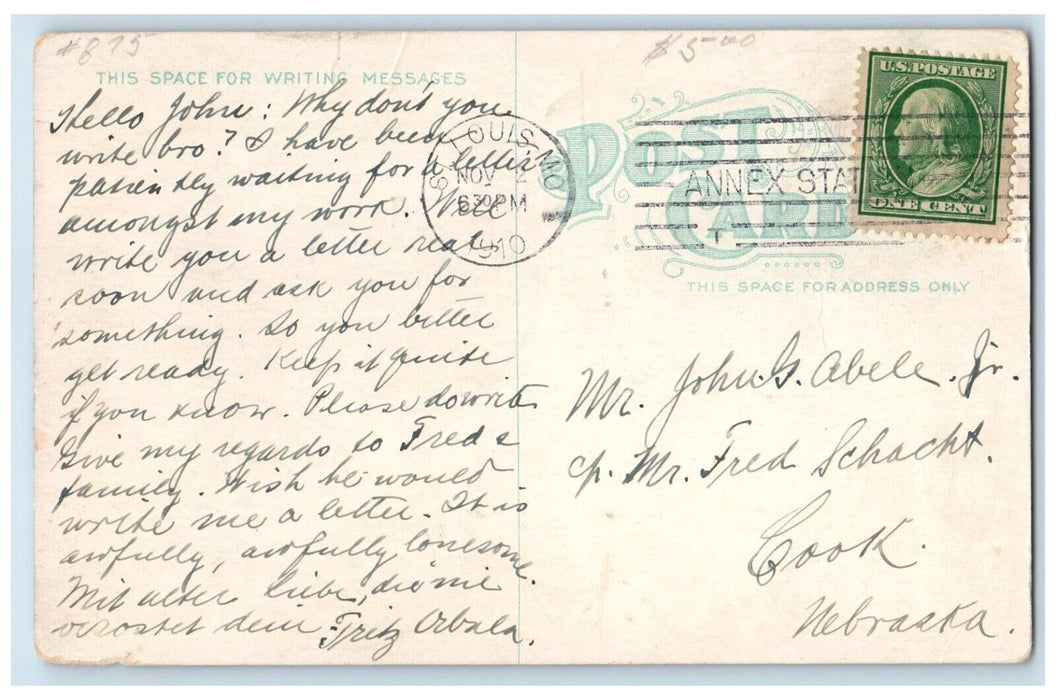 #875
$5.00
THIS SPACE FOR WRITING MESSAGES
Hello John: Why don't you
write bro? I have been
patiently waiting for a letter
amongst my work. Will
write you a letter real
soon and ask you for
something. So you better
get ready. Keep it quite
if you know. Please do write
Give my regards to Fred &
family. Wish he would
write me a letter. It is
awfully, awfully lonesome.
Mit alter Liebe, die nie
verostet dein Fritz
ST. LOUIS, MO.
NOV 2
630 PM
1910
ANNEX STA
POST
CARD
U.S. POSTAGE
ONE CENT
THIS SPACE FOR ADDRESS ONLY
Mr. John G. Abele. Jr.
c/. Mr. Fred Schacht.
Cook.
Nebraska.